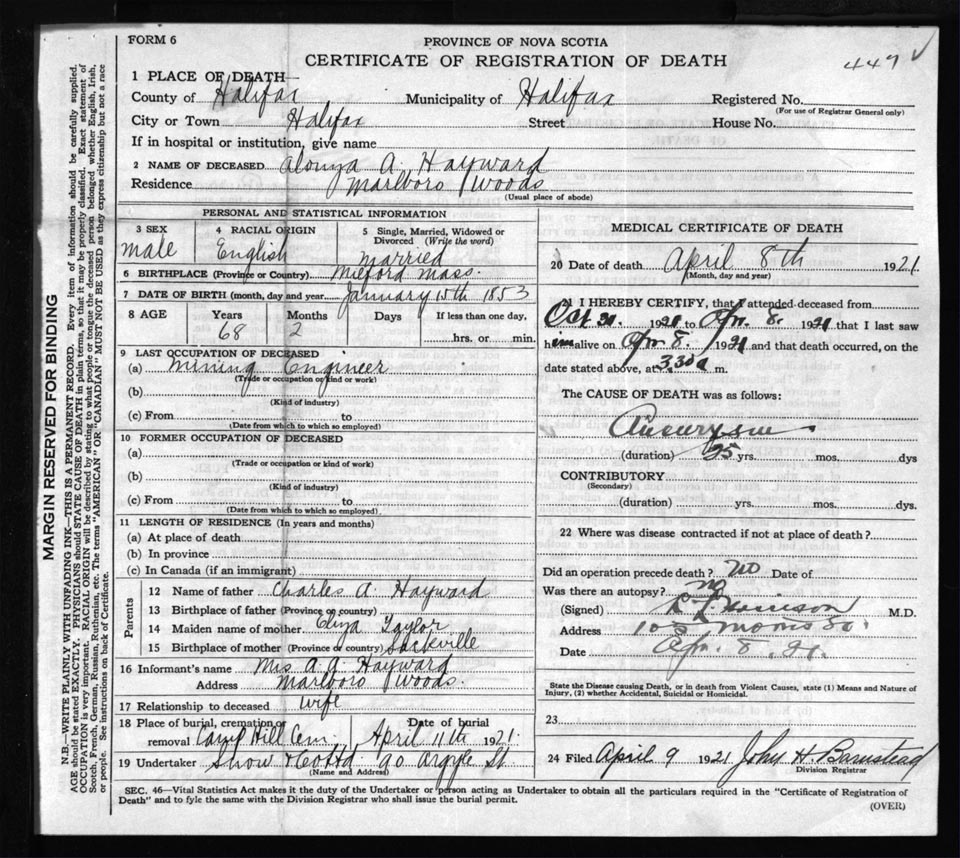 FORM 6
PROVINCE OF NOVA SCOTIA
CERTIFICATE OF REGISTRATION OF DEATH
447 ✓
1 PLACE OF DEATH—
County of Halifax Municipality of Halifax Registered No.
(For use of Registrar General only)
City or Town Halifax Street House No.
If in hospital or institution, give name
2 NAME OF DECEASED Alonza A. Hayward
Residence Marlboro Woods
(Usual place of abode)
PERSONAL AND STATISTICAL INFORMATION
3 SEX male
4 RACIAL ORIGIN English
5 Single, Married, Widowed or Divorced (Write the word) Married
6 BIRTHPLACE (Province or Country) Milford Mass.
7 DATE OF BIRTH (month, day and year) January 15th 1853
8 AGE Years Months Days If less than one day,
68 2 hrs. or min.
9 LAST OCCUPATION OF DECEASED
(a) Mining Engineer
(Trade or occupation or kind or work)
(b)
(Kind of industry)
(c) From to
(Date from which to which so employed)
10 FORMER OCCUPATION OF DECEASED
(a)
(Trade or occupation or kind of work)
(b)
(Kind of industry)
(c) From to
(Date from which to which so employed)
11 LENGTH OF RESIDENCE (In years and months)
(a) At place of death
(b) In province
(c) In Canada (if an immigrant)
Parents
12 Name of father Charles A. Hayward
13 Birthplace of father (Province or country)
14 Maiden name of mother Eliza Taylor
15 Birthplace of mother (Province or country) Sackville
16 Informant's name Mrs. A. A. Hayward
Address Marlboro Woods.
17 Relationship to deceased wife
18 Place of burial, cremation or removal Camp Hill Cem. Date of burial April 11th 1921.
19 Undertaker Snow & Co Ltd 90 Argyle St.
(Name and Address)
MEDICAL CERTIFICATE OF DEATH
20 Date of death April 8th 1921.
(Month, day and year)
21 I HEREBY CERTIFY, that I attended deceased from
Oct 192 to Apr. 8. 1921 that I last saw
him alive on Apr 8. 1921 and that death occurred, on the
date stated above, at 3.30 a m.
The CAUSE OF DEATH was as follows:
Aneurysm
(duration) 25 yrs. mos. dys
CONTRIBUTORY
(Secondary)
(duration) yrs. mos. dys.
22 Where was disease contracted if not at place of death?
Did an operation precede death? no Date of
Was there an autopsy? no
(Signed) M.D.
Address 105 Morris St.
Date Apr. 8. 21.
State the Disease causing Death, or in death from Violent Causes, state (1) Means and Nature of
Injury, (2) whether Accidental, Suicidal or Homicidal.
23
24 Filed April 9 1921 John H. Barnstead
Division Registrar
SEC. 46—Vital Statistics Act makes it the duty of the Undertaker or person acting as Undertaker to obtain all the particulars required in the "Certificate of Registration of
Death" and to fyle the same with the Division Registrar who shall issue the burial permit.
(OVER)
MARGIN RESERVED FOR BINDING
N.B.—WRITE PLAINLY WITH UNFADING INK—THIS IS A PERMANENT RECORD. Every item of information should be carefully supplied.
AGE should be stated EXACTLY. PHYSICIANS should STATE CAUSE OF DEATH in plain terms, so that it may be properly classified. Exact statement of
OCCUPATION is very important. RACIAL ORIGIN will be described by stating to what people or tongue the deceased person belonged whether English, Irish,
Scotch, French, German, Russian, Ruthenian, etc. The terms "AMERICAN" OR "CANADIAN" MUST NOT BE USED as they express citizenship but not a race
or people. See instructions on back of Certificate.